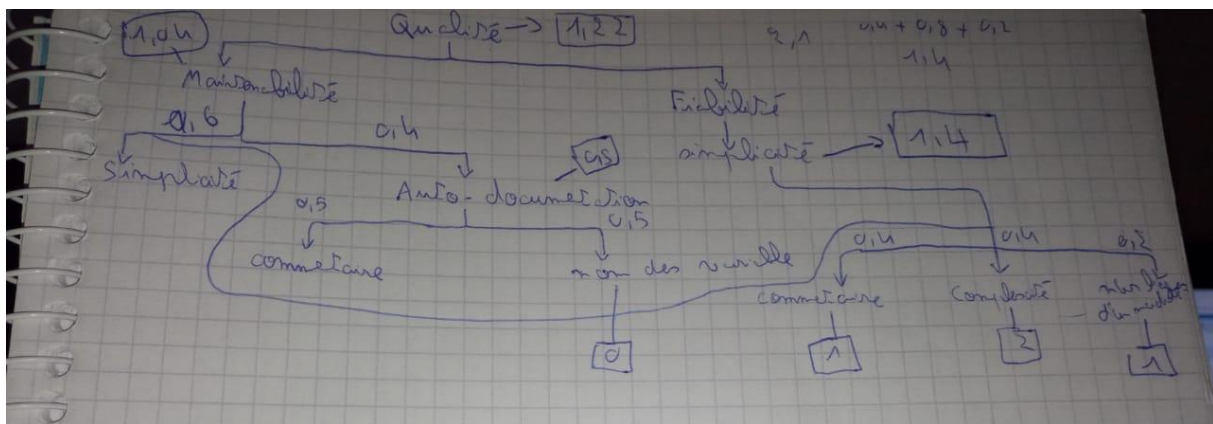 1,04 Qualité → 1,22 2,1 0,4 + 0,8 + 0,2
1,4
Maintenabilité Fiabilité
0,6 0,4
Simplicité 0,5 simplicité → 1,4
Auto-documetation
0,5 0,5
commetaire nom des variable
0,4 0,4 0,2
commetaire Complexité nbr lignes
d'un module
0 1 2 1